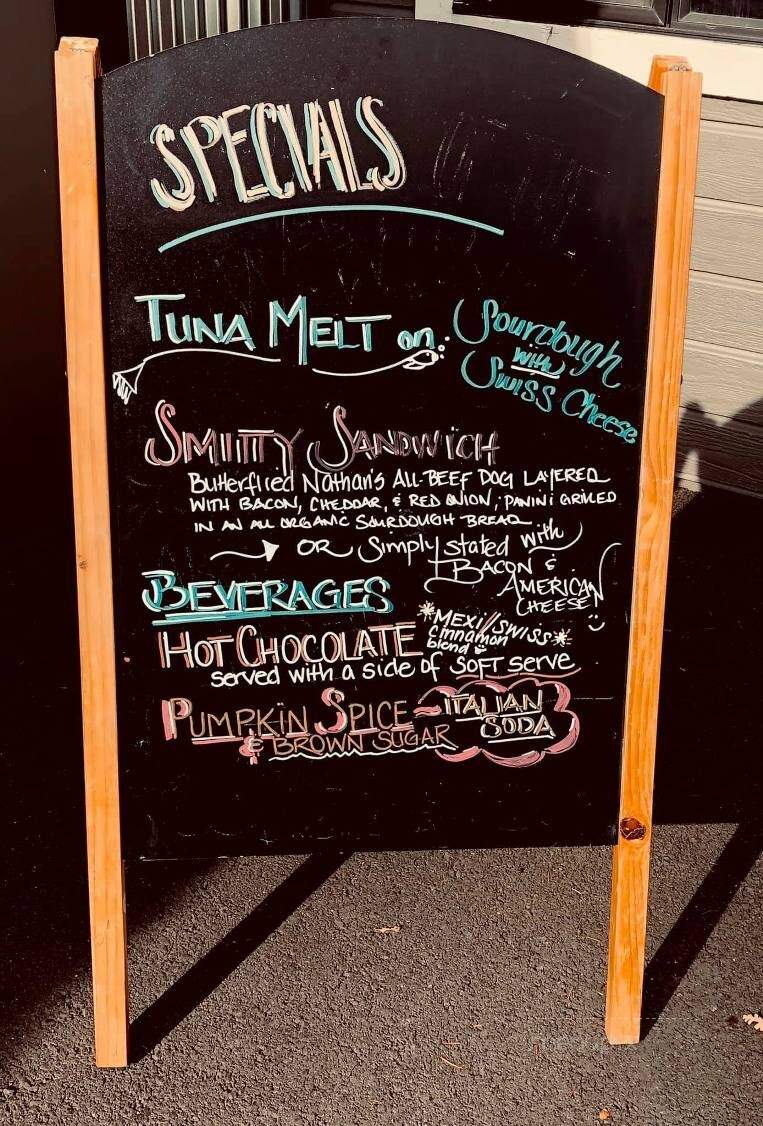 SPECIALS
TUNA MELT on Sourdough
with
Swiss Cheese
SMITTY SANDWICH
Butterflied Nathan's ALL-BEEF DOG LAYERED
WITH BACON, CHEDDAR, & RED ONION; PANINI GRILLED
IN AN ALL ORGANIC SOURDOUGH BREAD
OR Simply stated with
BACON &
AMERICAN
CHEESE
BEVERAGES
HOT CHOCOLATE *MEXI/SWISS*
cinnamon
blend
served with a side of SOFT serve
PUMPKIN SPICE ITALIAN
SODA
& BROWN SUGAR